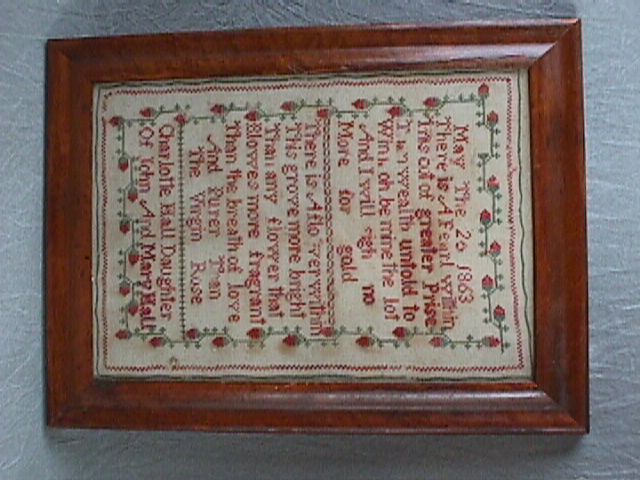 May The 26 1863
There is A Pearl within
This of greater Prise
Then wealth unfold to
Win oh be mine the lot
And I will sigh no
More for gold
There is A flower within
This grove more bright
Than any flower that
Blowes more fragrant
Than the breath of love
And Purer Than
The Virgin Rose
Charlotte Hall Daughter
Of John And Mary Hall